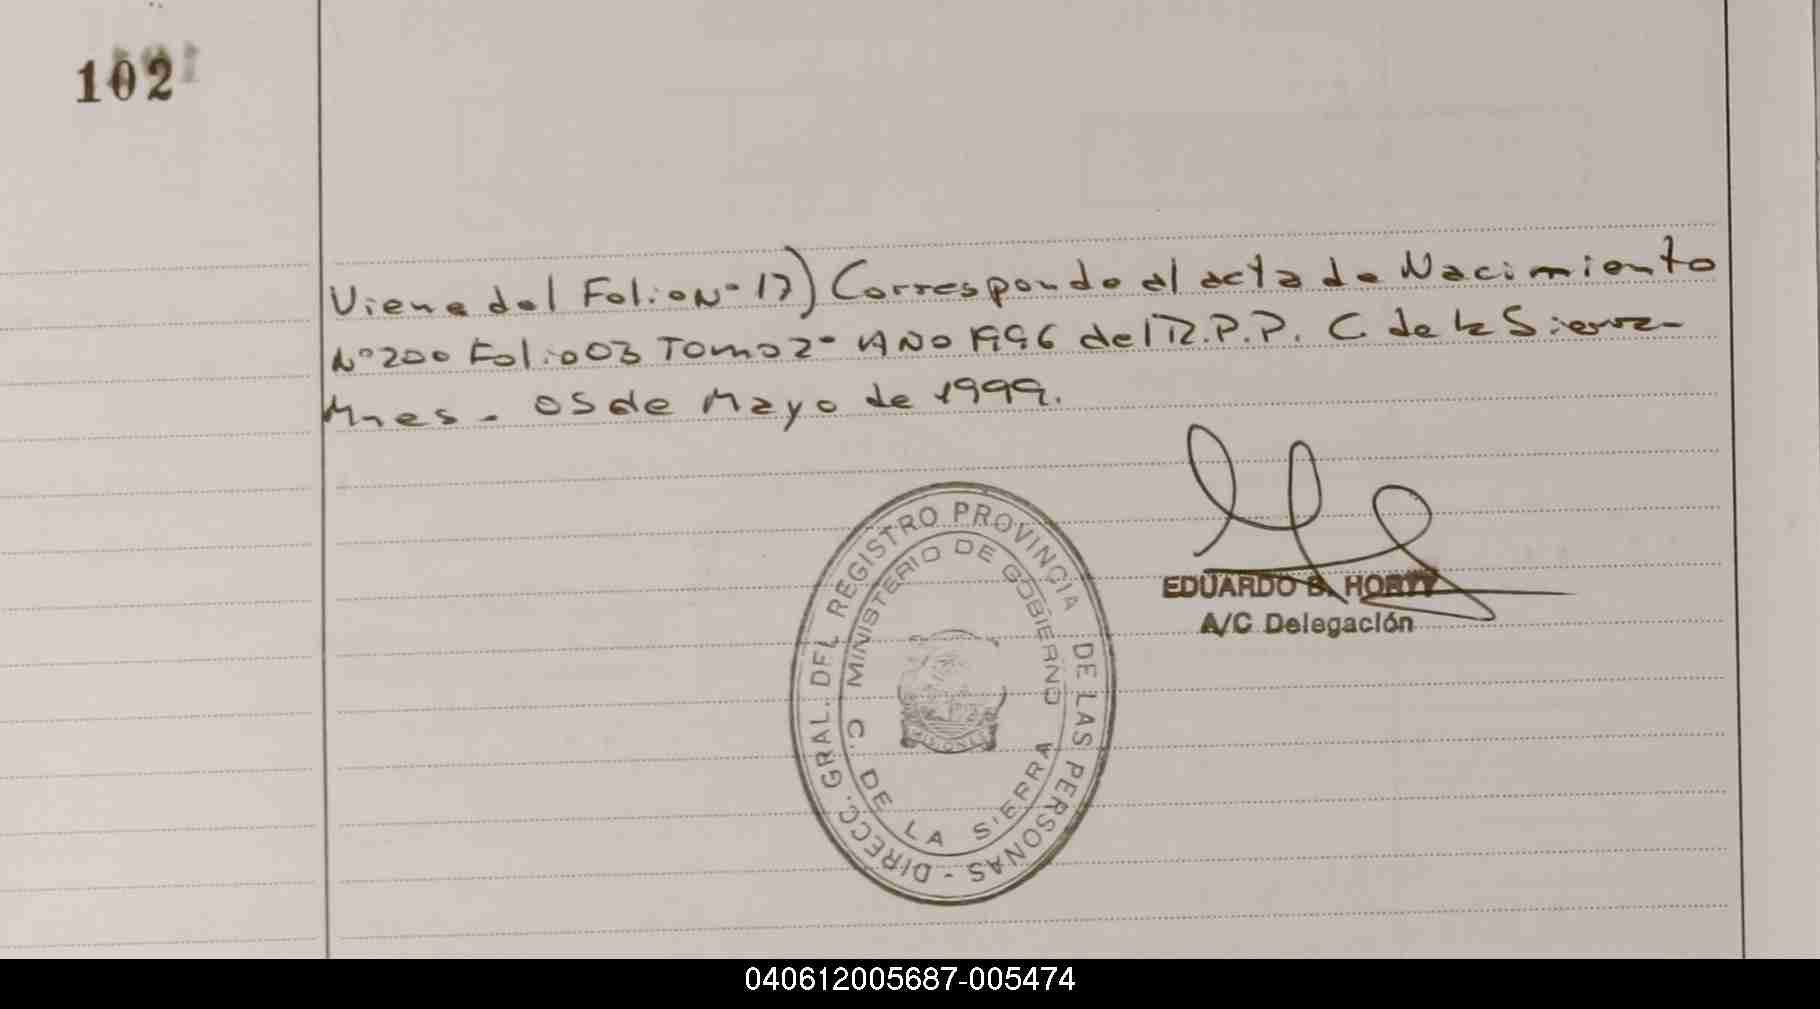 102
Viene del Folio Nº 17) Corresponde al acta de Nacimiento
Nº 200 Folio 03 Tomo 2º AÑO 1996 del R.P.P. C de la Sierra -
Mnes - 05 de Mayo de 1999.
EDUARDO B. HORTT
A/C Delegación
DIRECC. GRAL. DEL REGISTRO PROVINCIA DE LAS PERSONAS -
MINISTERIO DE GOBIERNO
MISIONES
C. DE LA SIERRA
040612005687-005474